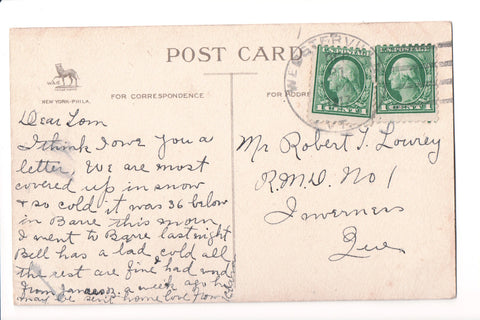 POST CARD
NEW YORK-PHILA.
FOR CORRESPONDENCE
FOR ADDRE
WEBSTERVI
VT.
1 CENT 1
CENT 1
Dear Tom
I think I owe you a
letter, We are most
covered up in snow
& so cold it was 36 below
in Barre this morn,
I went to Barre last night
Bell has a bad cold all
the rest are fine, had word
from a week ago he
may be sent home love from
Mr Robert T. Lowrey
R.M.D. No 1
Inverness
Que